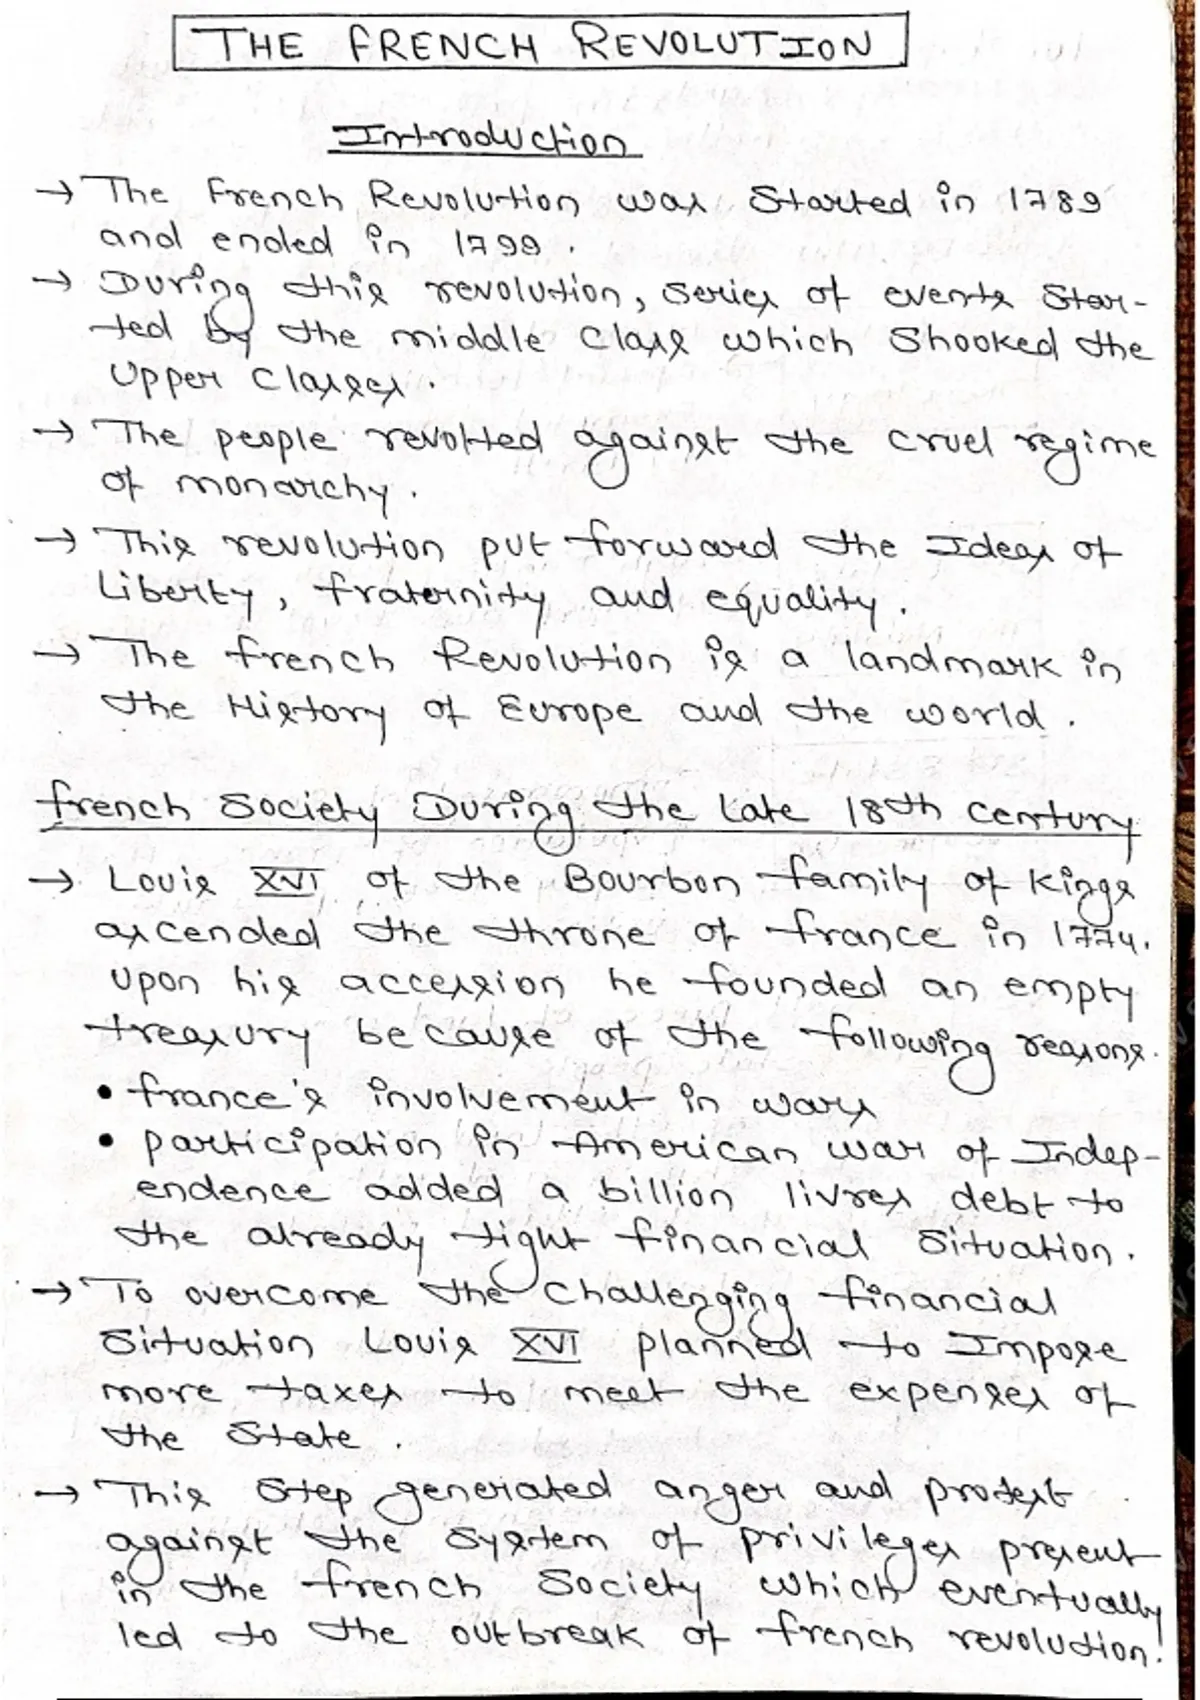 THE FRENCH REVOLUTION
Introduction
→ The French Revolution was Started in 1789
and ended in 1799.
→ During this revolution, series of events Star-
ted by the middle Class which Shooked the
Upper Classes.
→ The people revolted against the cruel regime
of monarchy.
→ This revolution put forward the Ideas of
Liberty, fraternity and equality.
→ The french Revolution is a landmark in
the History of Europe and the world.
french Society During the Late 18th Century
→ Louis XVI of the Bourbon family of Kings
ascended the throne of france in 1774.
Upon his accession he founded an empty
treasury because of the following reasons.
• france's involvement in wars
• participation in American war of Indep-
endence added a billion livres debt to
the already tight financial Situation.
→ To overcome the Challenging financial
Situation Louis XVI planned to Impose
more taxes to meet the expenses of
the State.
→ This Step generated anger and protest
against the System of privileges present
in the french Society which eventually
led to the outbreak of french revolution.